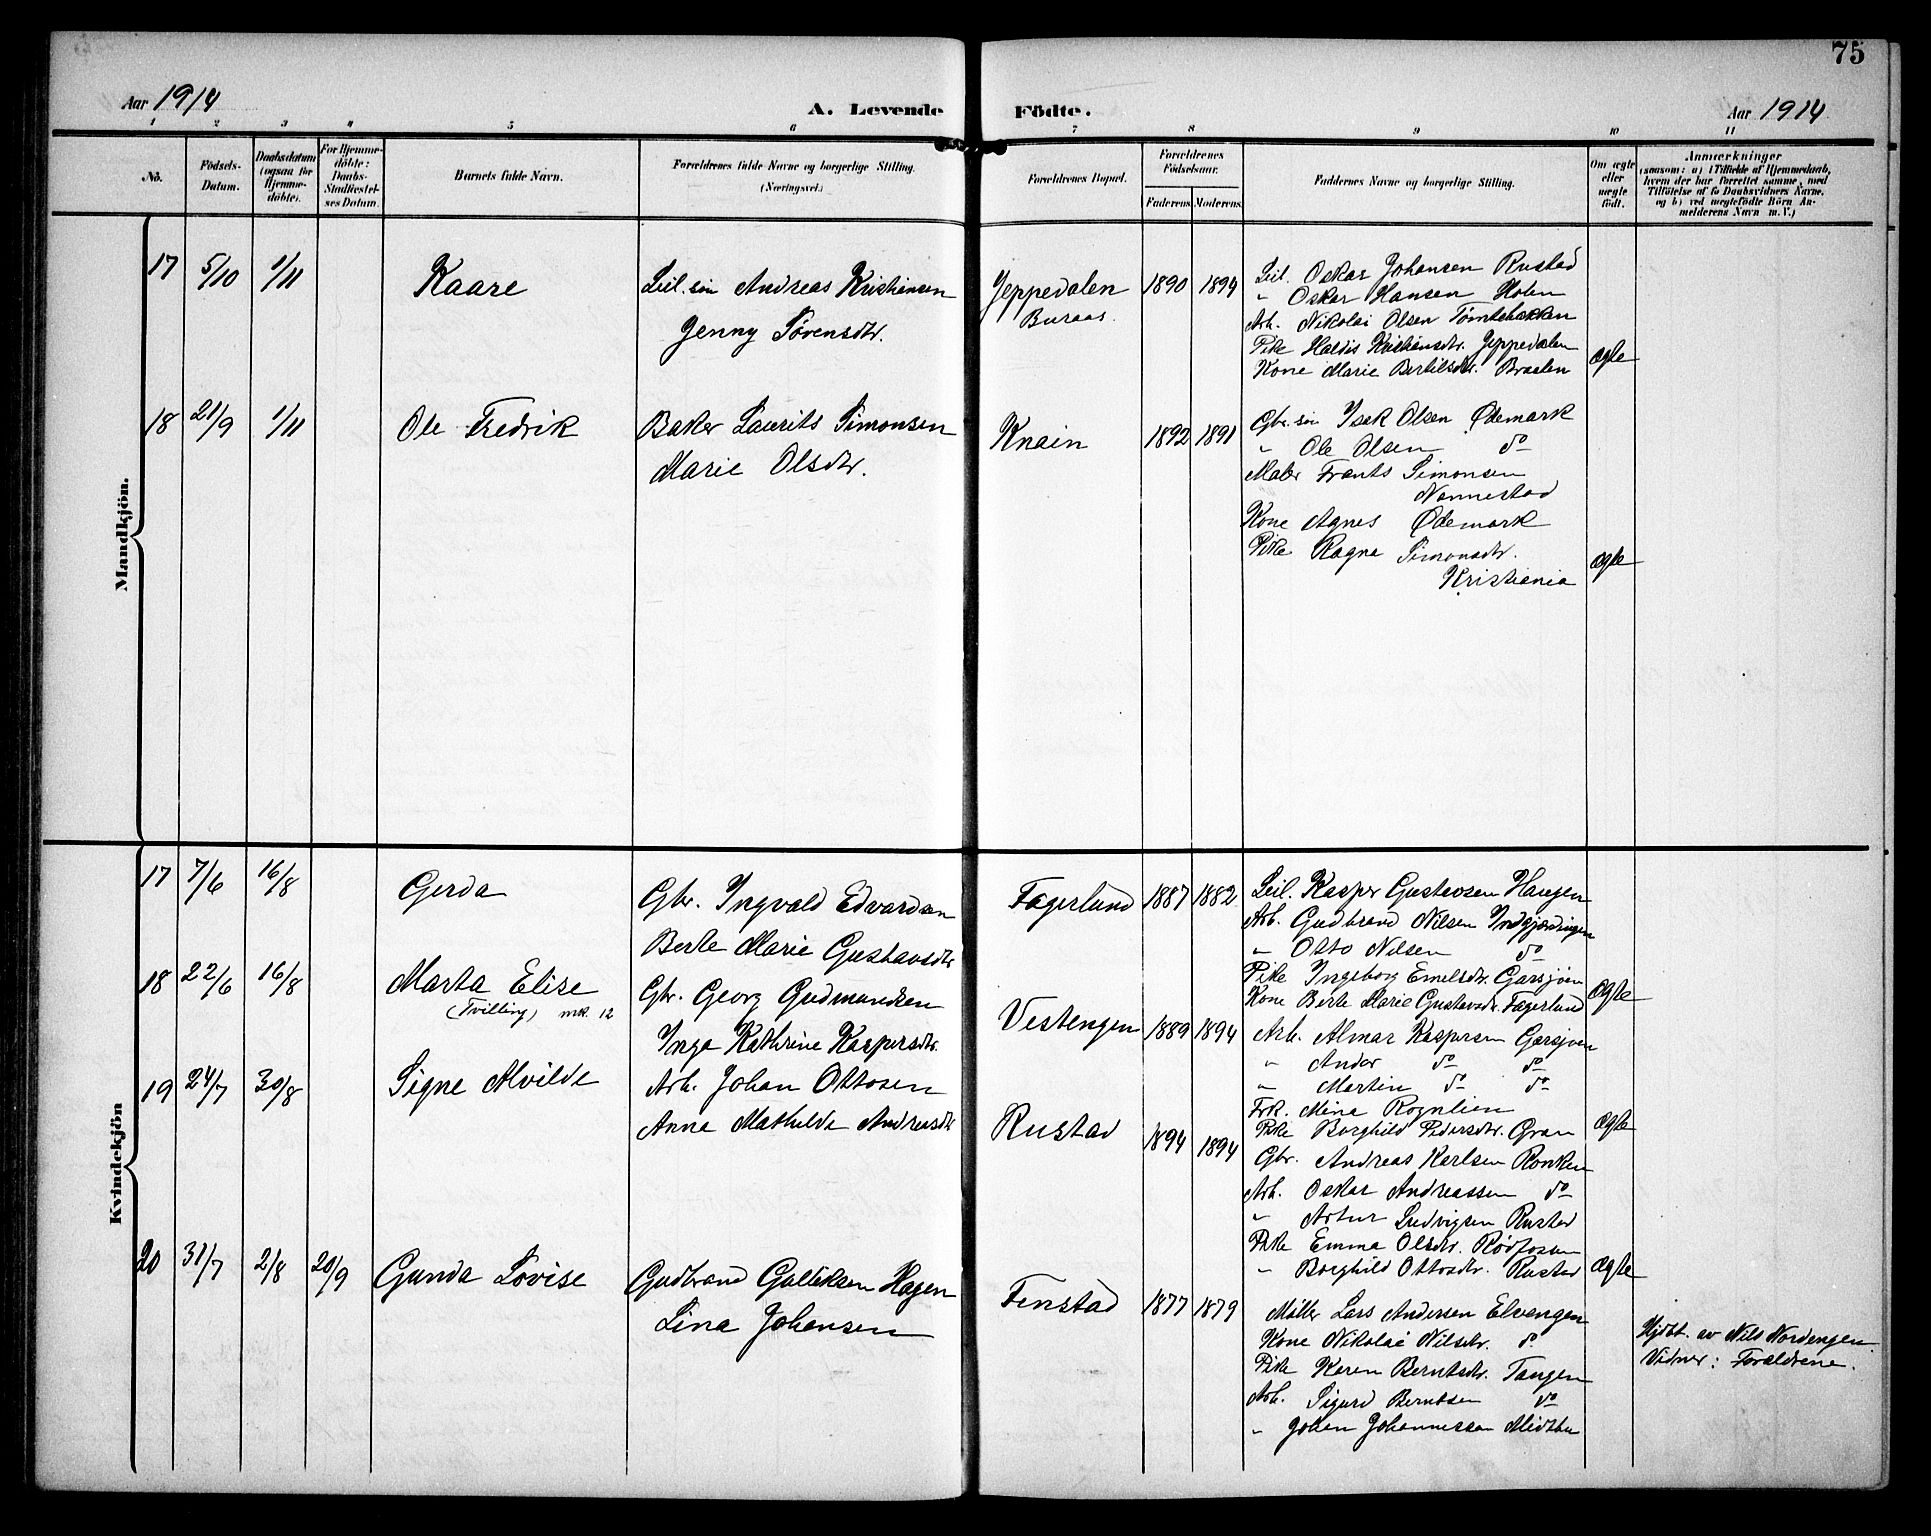 75
Aar 1914
A. Levende Födte.
Aar 1914
1 2 3 4 5 6 7 8 9 10 11
No.
Födsels-Datum.
Daabsdatum (ogsaa for Hjemmedöbte).
For Hjemmedöbte: Daabs-Stadfæstelses Datum.
Barnets fulde Navn.
Forældrenes fulde Navne og borgerlige Stilling.
(Næringsvei.)
Forældrenes Bopæl.
Forældrenes Födselsaar.
Faderens. Moderens.
Faddernes Navne og borgerlige Stilling.
Om ægte eller uægte födt.
Anmærkninger
(saasom: a) i Tilfælde af Hjemmedaab,
hvem der har forrettet samme, med
Tilföielse af to Daabsvidners Navne,
og b) ved uægtefödte Börn An-
melderens Navn m. V.)
Mandkjön.
17 5/10 1/11 Kaare
Leil. sön Andreas Kristiansen
Jenny Sørensdtr.
Jeppedalen
Buraas.
1890 1894
Leil. Oskar Johansen Rustad
" Oskar Hansen Holen
Arb. Nikolai Olsen Tømtebakken
Pike Haldis Kristiansdtr. Jeppedalen
Kone Marie Bertilsdtr. Braaten
ægte
18 21/9 1/11 Ole Fredrik
Baker Laurits Simonsen
Marie Olsdtr.
Knain
1892 1891
Gbr. sön Isak Olsen Ødemark
" Ole Olsen do
Maler Frants Simonsen
Nannestad
Kone Agnes Ødemark
Pike Ragna Simonsdtr.
Kristiania
ægte
Kvindekjön
17 7/6 16/8 Gerda
Gbr. Ingvald Edvardsen
Berte Marie Gustavsdtr
Fagerlund
1887 1882
Leil. Kasper Gustavsen Haugen
Arb. Gudbrand Nilsen Indgjærdingen
" Otto Nilsen do
Pike Ingeborg Emilsdtr. Garsjøen
Kone Berte Marie Gustavsdtr. Fagerlund
ægte
18 22/6 16/8 Marta Elise
(Tvilling) mk. 12
Gbr. Georg Gudmundsen
Inga Kathrine Kaspersdtr.
Vestengen
1889 1894
Arb. Almar Kaspersen Garsjøen
" Anders do do
" Martin do do
Frk. Mina Rognlien
Pike Borghild Pedersdtr. Gran
ægte
19 24/7 30/8 Signe Alvilde
Arb. Johan Ottosen
Anna Mathilde Andreasdtr
Rustad
1894 1894
Gbr. Andreas Karlsen Ronken
Arb. Oskar Andreassen do
" Artur Ludvigsen Rustad
Pike Emma Olsdtr. Rødfossen
" Borghild Ottosdtr. Rustad
ægte
20 31/7 2/8 20/9 Gunda Lovise
Gudbrand Gulliksen Hagen
Lina Johansen
Finstad
1877 1879
Møller Lars Andersen Elvengen
Kone Nikolai Nilsdtr. do
Pike Karen Berntsdtr. Tangen
Arb. Sigurd Berntsen do
" Johan Johannessen Midtbu
Hjdbt. av Nils Nordengen.
Vidner: Forældrene.